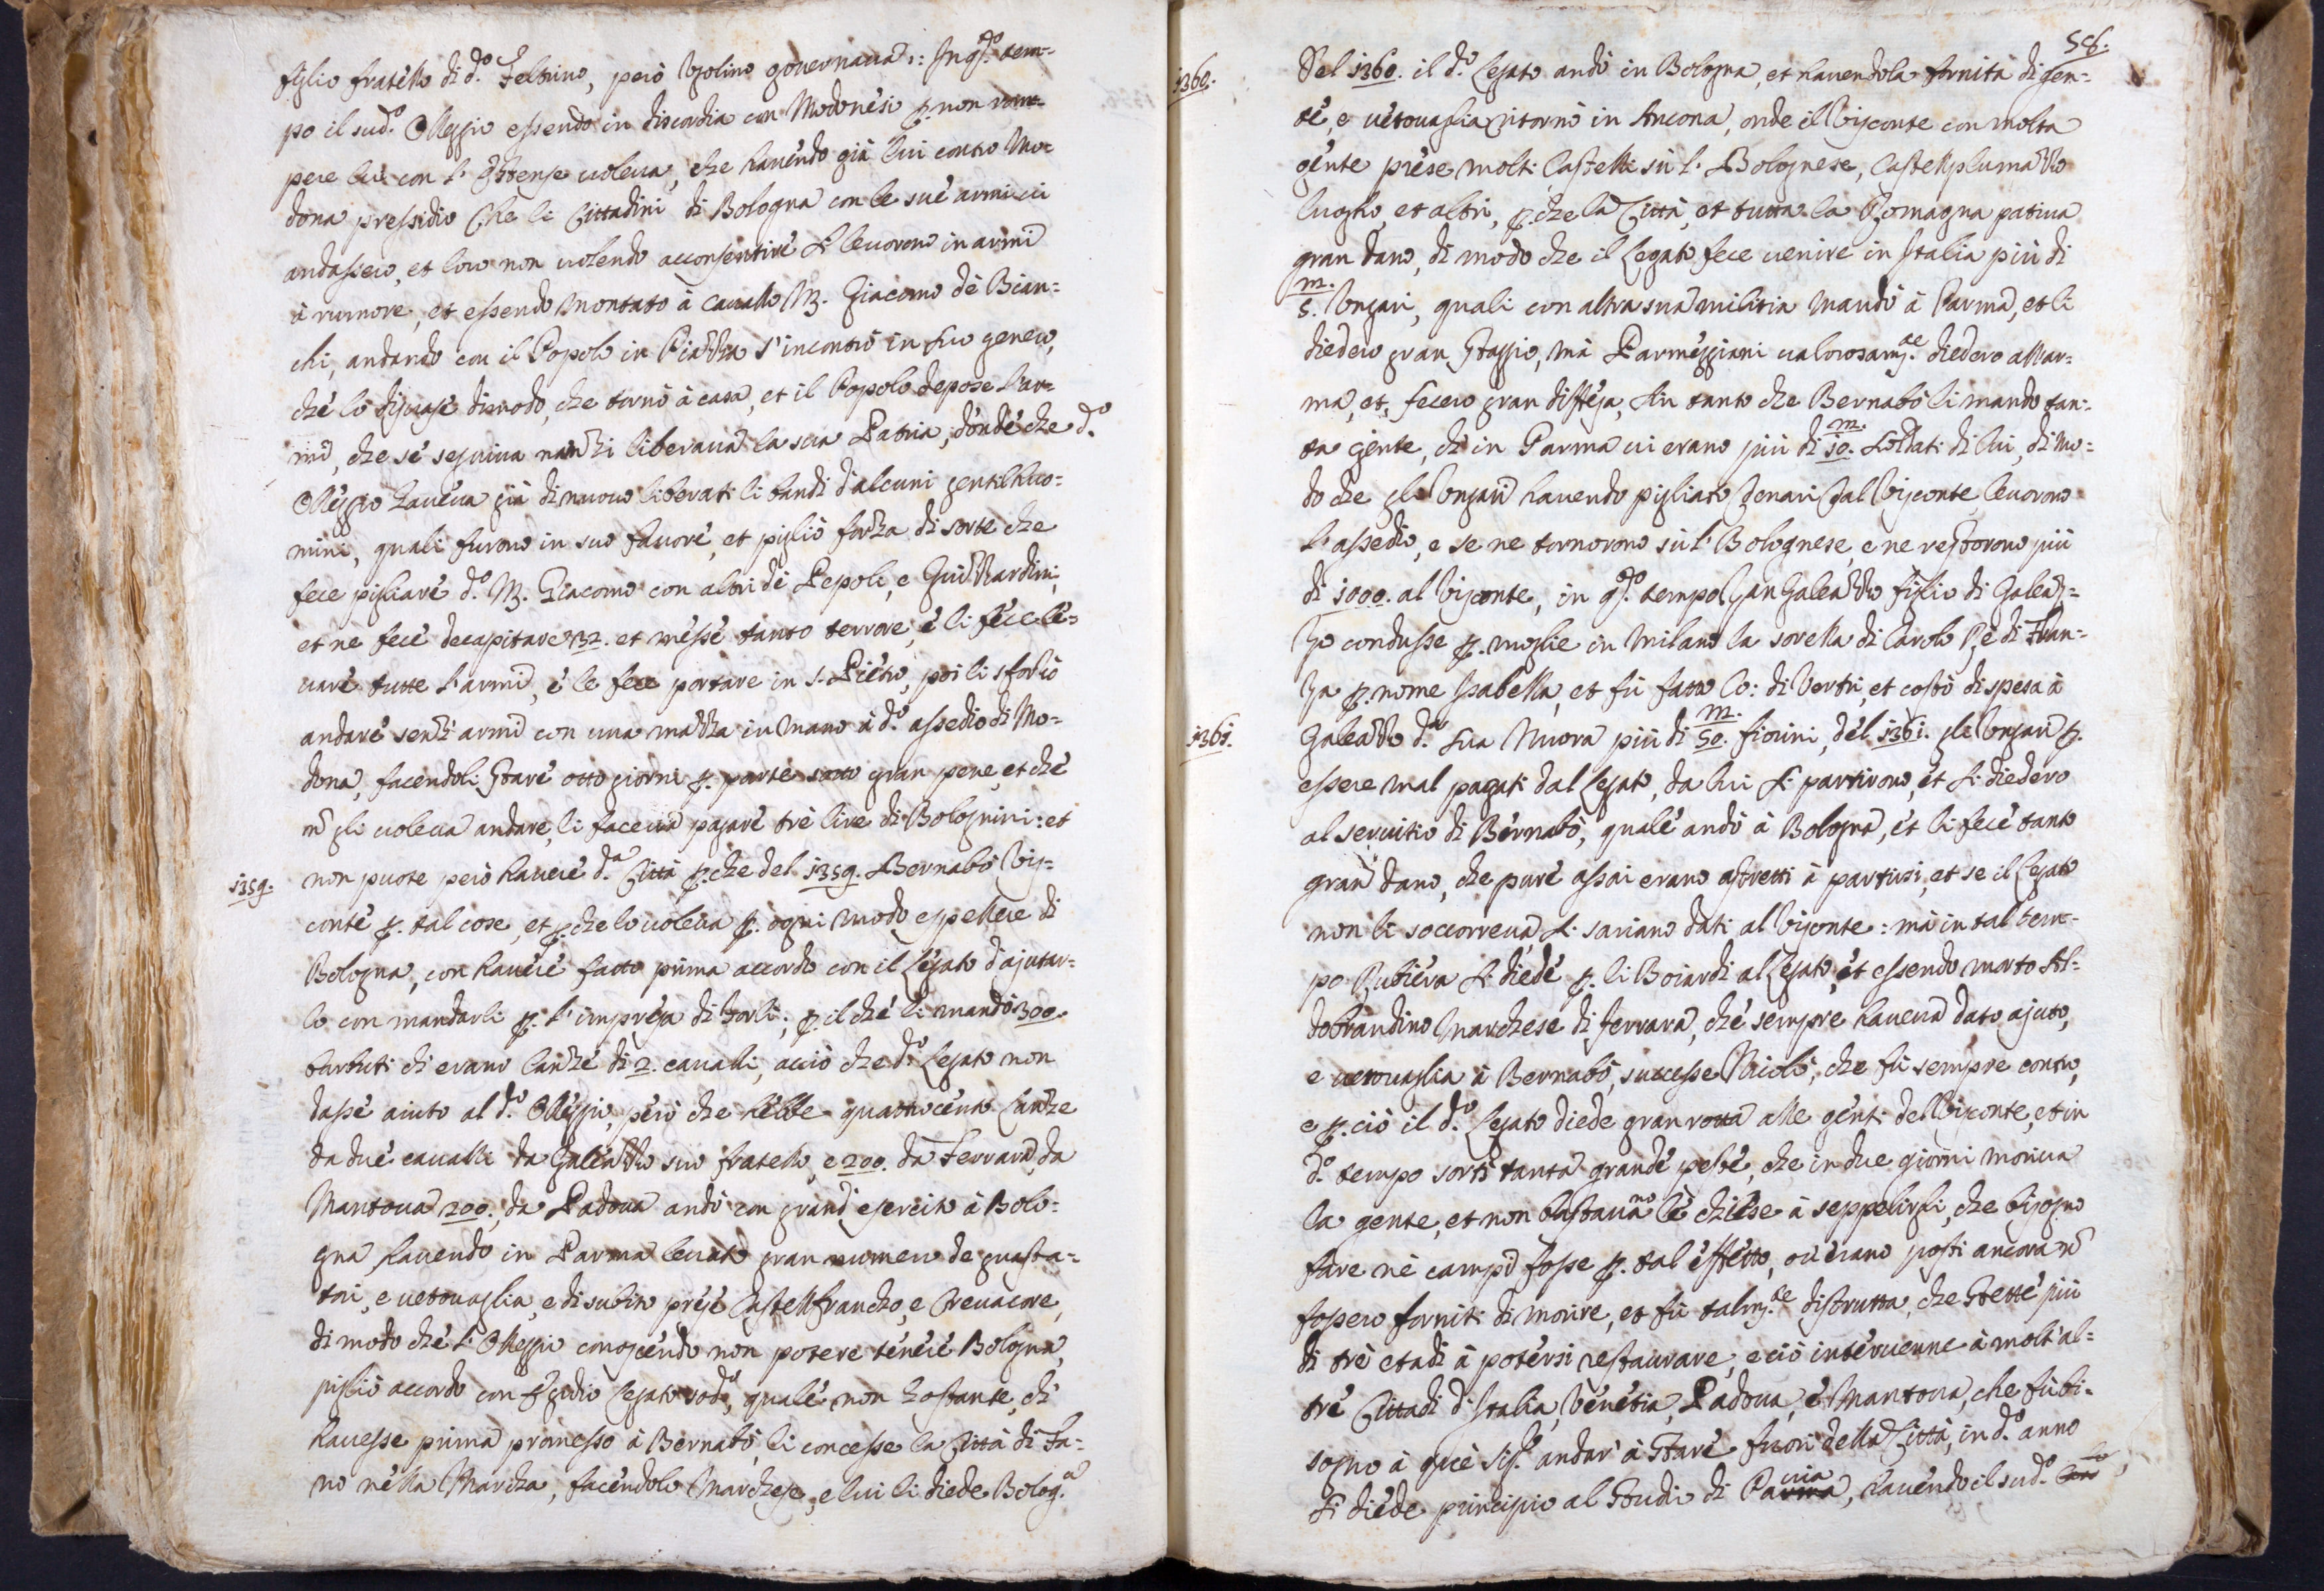 figlio fratello di d.º Feltrino, però Ugolino governava: In q̃sto tem=
po il sud.º Olleggio essendo in discordia con Modonesi p. non rom=
pere lui con l'Estense voleva, che havendo già lui contro Mo=
dona pressidio che li Cittadini di Bologna con le sue armi vi
andassero, et loro non volendo acconsentire si levorono in armi
à rumore, et essendo montato à cavallo M. Giacomo dè Bian=
chi, andando con il Popolo in Piazza s'incontrò in suo genero,
ché lo dissuasé dimodo, che tornò à casa, et il Popolo depose l'ar=
mi, che sé seguiva nanzi liberava la sua Patria, dondé che d.º
Olleggio haveva già di nuovo liberati li bandi d'alcuni gentilhuo=
mini, quali furono in suo favore, et pigliò forza di sorte che
fece pigliare d.º M. Giacomo con altri dè Pepoli, e Guizzardini,
et ne fecé decapitare 32. et messé tanto terrore, é li féce lé=
varé tutte l'armi, é le fece portare in s. Piétro, poi li sforzò
andaré senz'armi con una mazza in mano à d.º assedio di Mo=
dona, facendoli staré otto giorni p. parte sotto gran pene, et ché
nõ gli voleva andare, li faceva pagaré tré lire di Bolognini: et
1359. non puote però haveré d.ª Città p.che del 1359. Bernabò Vis=
conté p. tal cose, et p.che lo voleva p. ogni modo eppellere di
Bologna, con haveré fatto prima accordo con il Legato d'ajutar=
lo con mandarli p. l'impresa di Forlì; p. il ché li mandò 300.
barbuti ch'erano lanzé di 2. cavalli, acciò che d.º Legato non
dassé aiuto al d.º Olléggio, però che hébbe quattrocento lanze
da dué cavalli da Galéazzo suo fratello, e 200. da Ferrara, da
Mantova 200. da Padova andò con grand'esercito à Bolo=
gna havendo in Parma levato gran numero de guasta=
tori, e vetovaglia, e di subito présé Castellfrancho, e Crevacore,
di modo ché l'Olleggio conoscendo non potere ténéré Bologna,
pigliò accordo con Egidio Legato sod.º, qualé non hostante, ch'
havesse prima promesso à Bernabò, li concesse la Città di Fa=
no nélla Marcha, facéndolo Marchese, e lui li diede Bolog.ª
58.
1360. Del 1360. il d.º Legato andò in Bologna, et havendola fornita di gen=
té, e vétovaglia ritornò in Ancona, onde il Visconte con molta
génte présé molti Castelli sù l'Bolognese, Castelloplumazzo
lugho, et altri, p.che la Città, et tutta la Romagna pativa
gran dano, di modo che il Legato fece venire in Italia più di
m.
5. Ongari, quali con altra sua militia mandò à Parma, et li
diedero gran staggio, mà Parméggiani valorosam.te diedero all'ar=
ma, et fecero gran difféja, sin tanto che Bernabò li mandò tan=
m.
ta génte, ch'in Parma vi erano più di 10. soldati di lui, di mo=
do che gli Ongari havendo pigliato denari dal Visconte, levorono
l'assedio, e se ne tornorono sù l'Bolognese, e ne restorono più
di 1000. al Visconte, in q̃sto tempo Gan Galeazzo figlio di Galeaz=
zo condusse p. moglie in Milano la sorella di Carolo Rè di Fran=
za p. nome Isabella, et fù fatto Co: di Vertù, et costò di spesa à
m.
1361. Galeazzo d.ª sua Nuora più di 50. fiorini, dél 1361. gli Ongari p.
essere mal pagati dal Legato, da lui si partirono, ét si diedero
al servitio di Bérnabò, qualé andò à Bologna, ét li fecé tanto
gran dano, che puré assai erano astretti à partirsi, et se il Legato
non li soccorreva, si sariano dati al Visconte: mà in tal tem=
po Rubiéra si diedé p. li Boiardi al Legato, ét essendo morto Al=
dobrandino Marchese di ferrara, ché sempre haveva dato ajuto,
e vetovaglia à Bernabò, successe Nicolò, che fù sempre contro,
e p. ciò il d.º Legato diede gran rotta alle génti del Visconte, et in
d.º tempo sortì tanta grandé pesté, che in due giorni moriva
la gente, et non bastavano lé chiése à seppelirgli, che bisognò
fare né campi fosse p. tal éffétto, ov'érano posti ancora nõ
fossero forniti di morire, et fù talm.te distrutta, che stetté più
di tré etadi à potérsi restaurare, e ciò intérvenne à molt'al=
tré Cittadi d'Italia, Vénétia, Padova, é Mantova, che fù bi=
sogno à qué Sig.ri andar' à staré fuori della Città, in d.º anno
si diéde principio al studio di Pavia, havéndo il sud.º